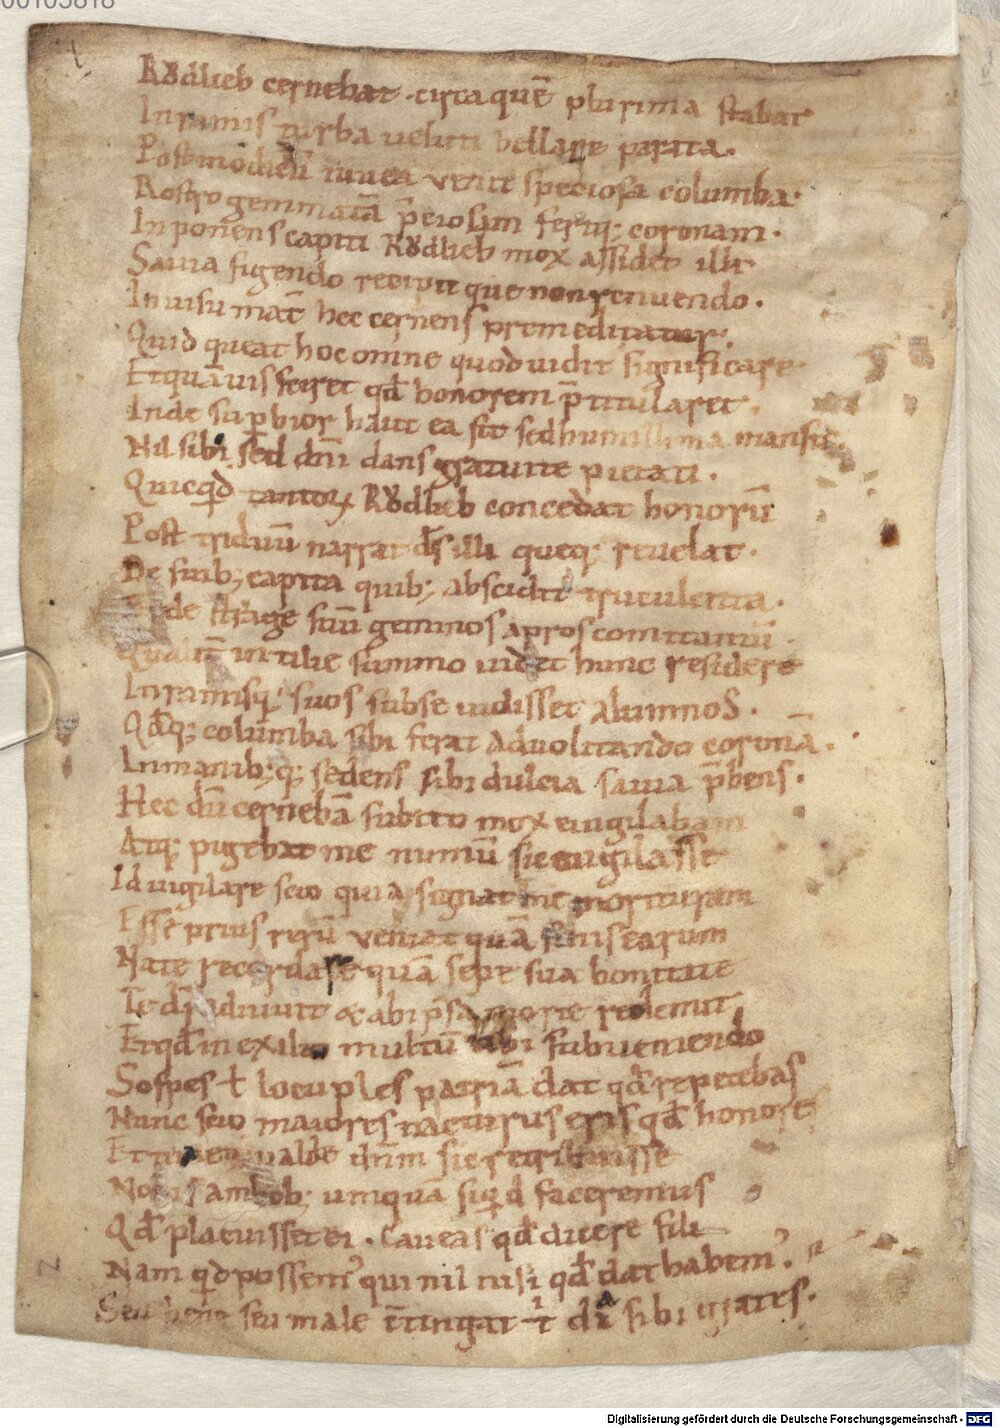 00103818
Rŏdlieb cernebat . circa quē plurima stabat
In ramis turba veluti bellare parata .
Post modicū nivea venit speciosa columba .
Rostro gemmatā p̄ciosam ferηꝫ coronam .
Inponens capiti Rŏdlieb mox assidet illi
Savia figendo recipit que non renuendo .
In visu mat̄ hec cernens premeditatur .
Quid queat hoc omne quod vidit significare
Et quāvis sciret qđ honorem p̄titularet .
Inde supbior haut ea fit sed humillima mansit .
Nil sibi sed dn̄i dans gratuite pietati .
Quicqd̄ tantoꝝ Rŏdlieb concedat honorū
Post triduū narrat ds̄ illi queqꝫ revelat .
De suibꝫ capita quibꝫ abscidit truculenta .
Et de strage suū geminos apros comitantiū .
Qualit̄ in tilie summo videt hunc residere
In ramisqꝫ suos sub se vidisset alumnos .
Qđqꝫ columba sibi ferat advolitando coronā .
In manibꝫ qꝫ sedens sibi dulcia savia p̄bens .
Hec dū cernebā subito mox evigilabam
Atqꝫ pigebat me nimiū sic evigilasse
Id vigilare scio quia signat me morituram
Esse prius rerū veniat quā finis earum
Nate recordare quā sepe sua bonitate
Te ds̄ adiuvit & ab ip̄sa morte redemit
Et qđ in exilio multū tibi subveniendo
Sospes ł locuples patriā dat qđ repetebas
Nunc scio maiores nacturus eris qđ honores
Et valde dn̄m sic retribuisse
Nobis ambobꝫ umquā siqd̄ faceremus
Qđ placuisset ei . Caveas qđ dicere fili
Nam qd̄ possem̄ qui nil nisi qđ dat habem̄ .
Seu bene seu male c̄tingat t̄ dā sibi grates .
Digitalisierung gefördert durch die Deutsche Forschungsgemeinschaft - DFG